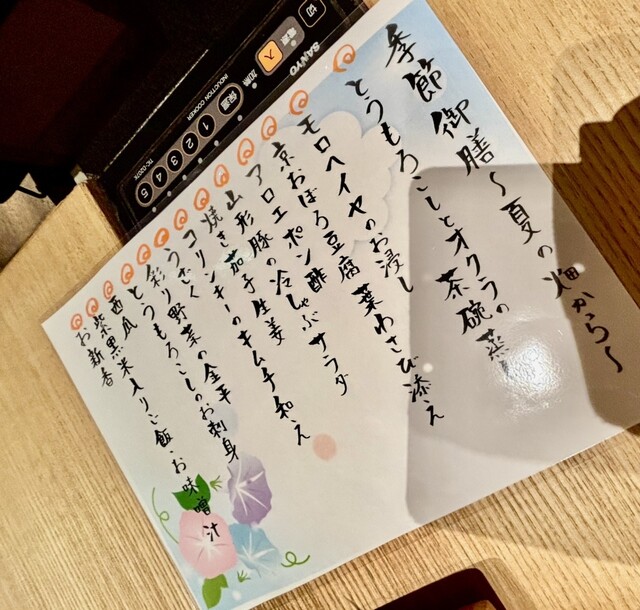 季節御膳〜夏の畑から〜
とうもろこしとオクラの茶碗蒸し
モロヘイヤのお浸し
京おぼろ豆腐 葉わさび添え
アロエポン酢
山形豚の冷しゃぶサラダ
焼き茄子生姜
コリンキーのキムチ和え
彩り野菜の金平
とうもろこしのお刺身
西瓜
紫黒米入りご飯・お味噌汁
お新香
SANYO
切
電源
入
加熱
保温
1 2 3 4 5
INDUCTION COOKER